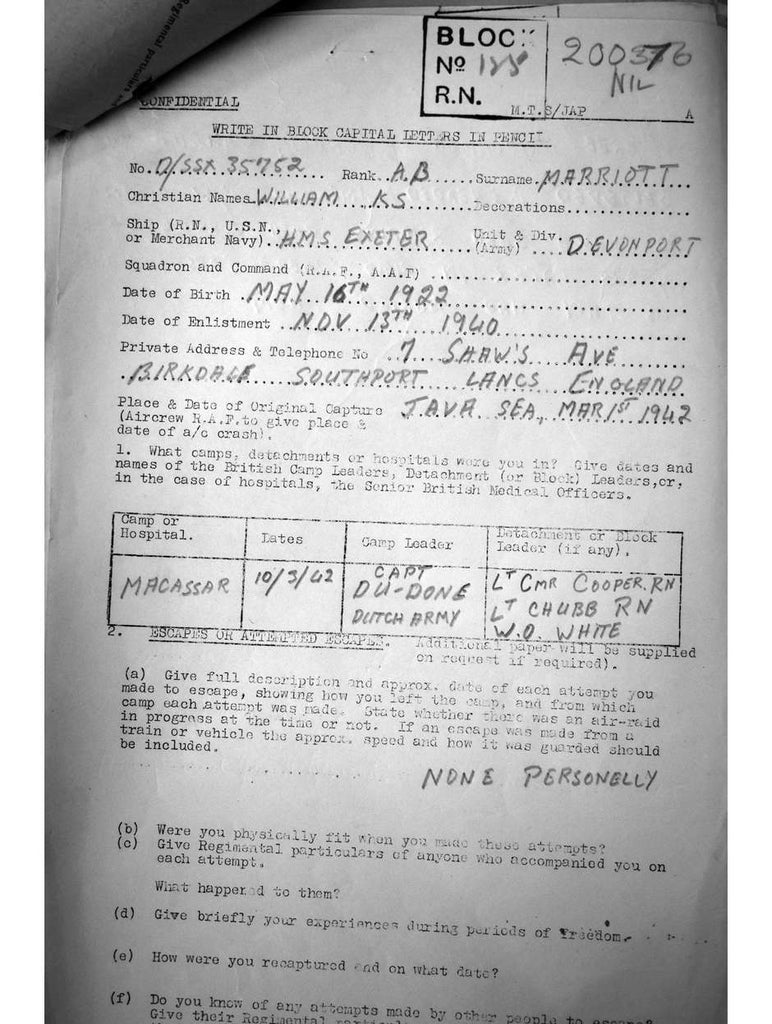 Regimental particulars
BLOCK
Nº 188
R.N.
200376
NIL
CONFIDENTIAL
M.T.S/JAP A
WRITE IN BLOCK CAPITAL LETTERS IN PENCIL
No. D/SSX 35752 Rank. A.B Surname. MARRIOTT
Christian Names WILLIAM KS Decorations
Ship (R.N., U.S.N., or Merchant Navy). H.M.S EXETER Unit & Div. (Army) DEVONPORT
Squadron and Command (R.A.F., A.A.F)
Date of Birth MAY 16TH 1922
Date of Enlistment NOV 13TH 1940
Private Address & Telephone No 7 SHAW'S AVE
BIRKDALE SOUTHPORT LANCS ENGLAND
Place & Date of Original Capture JAVA SEA, MAR 1ST 1942
(Aircrew R.A.F. to give place &
date of a/c crash).
1. What camps, detachments or hospitals were you in? Give dates and
names of the British Camp Leaders, Detachment (or Block) Leaders, or,
in the case of hospitals, the Senior British Medical Officers.
Camp or Hospital. Dates Camp Leader Detachment or Block Leader (if any).
MACASSAR 10/3/42 CAPT DU-DONE DUTCH ARMY LT CMR COOPER. RN
LT CHUBB RN
W.O. WHITE
2. ESCAPES OR ATTEMPTED ESCAPES. Additional paper will be supplied
on request if required).
(a) Give full description and approx. date of each attempt you
made to escape, showing how you left the camp, and from which
camp each attempt was made. State whether there was an air-raid
in progress at the time or not. If an escape was made from a
train or vehicle the approx. speed and how it was guarded should
be included.
NONE PERSONELLY
(b) Were you physically fit when you made these attempts?
(c) Give Regimental particulars of anyone who accompanied you on
each attempt.
What happened to them?
(d) Give briefly your experiences during periods of freedom.
(e) How were you recaptured and on what date?
(f) Do you know of any attempts made by other people to escape?
Give their Regimental